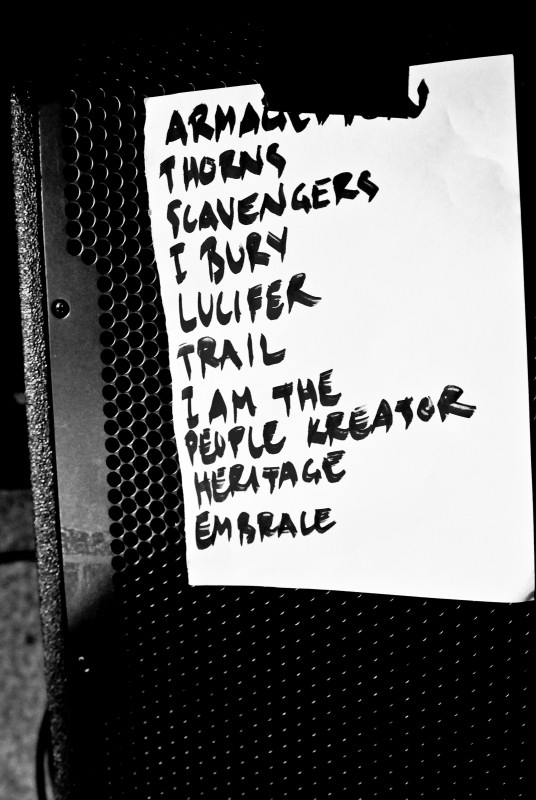 THORNS
SCAVENGERS
I BURY
LUCIFER
TRAIL
I AM THE
PEOPLE KREATOR
HERITAGE
EMBRACE